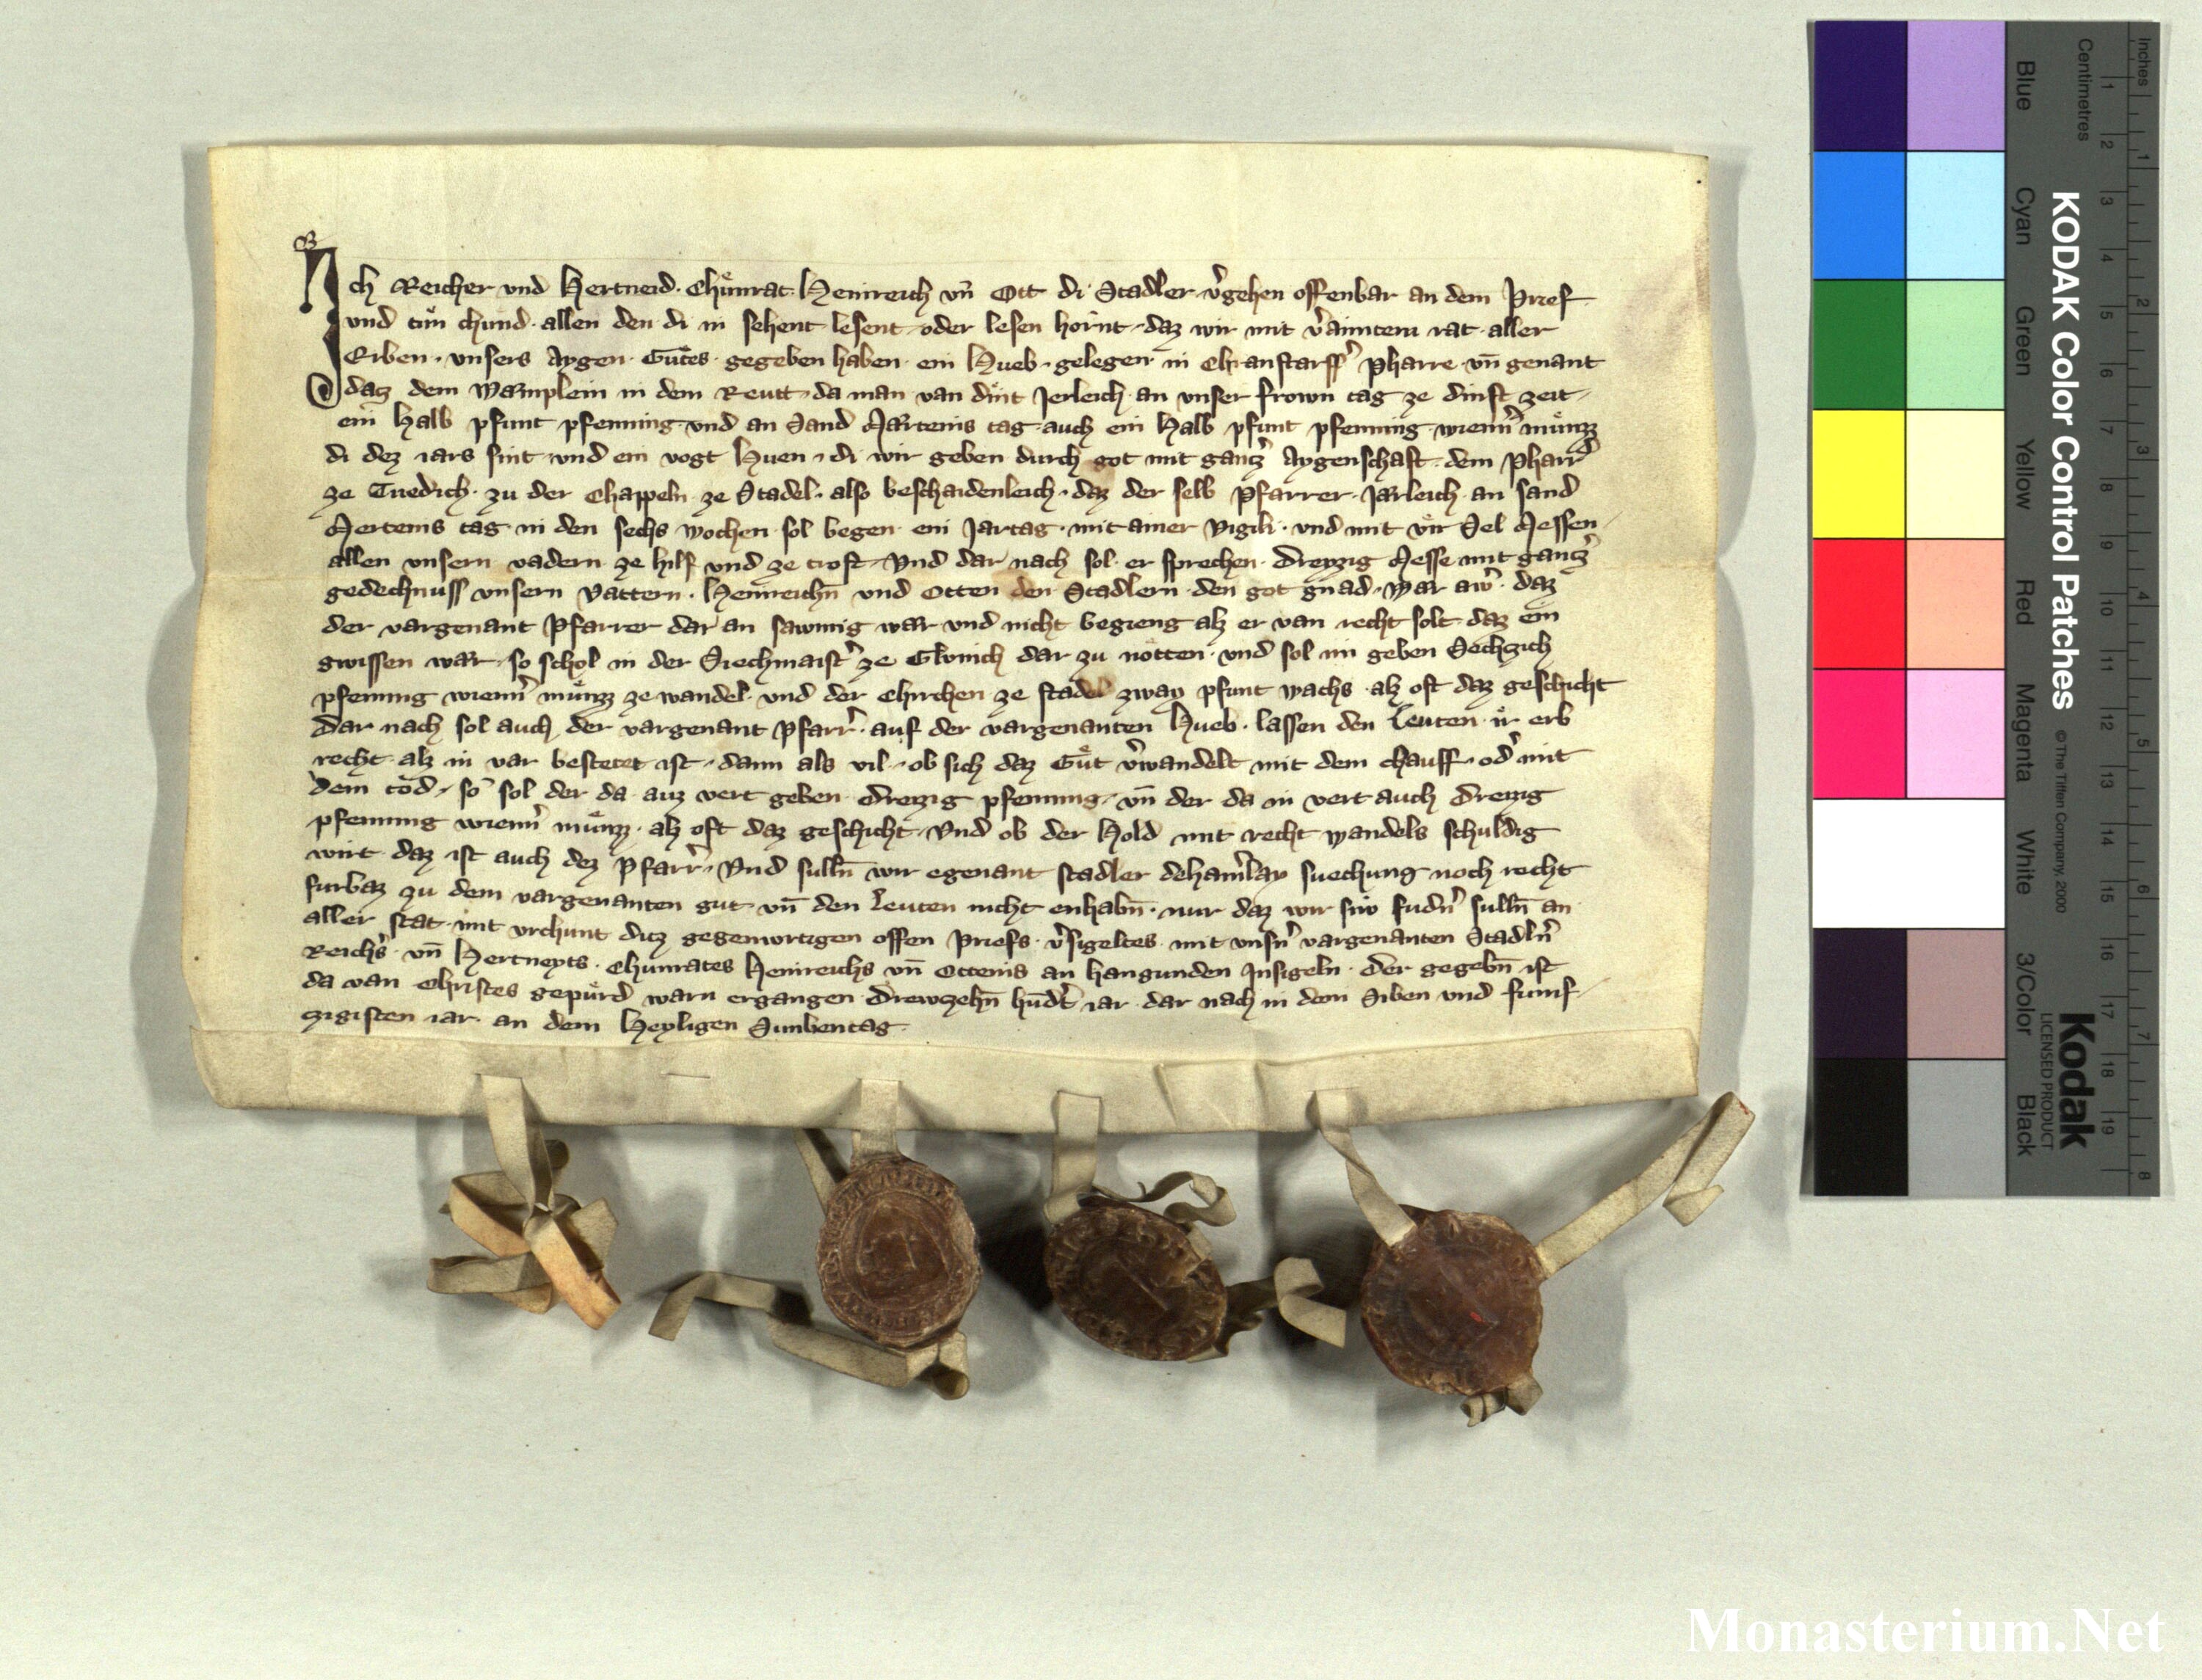 Ich Reicher und Hertneid · Chůnrat · Heinreich vn̄ Ott di Stadler v̉gehen offenbar an dem Prief
und tůn chund · allen den · di in sehent lesent oder lesen hörnt · daz wir mit v̉aintem rat · aller
Erben · unsers aygen · Gůtes · gegeben haben · ein Hueb · gelegen · in Chranstarff̉ Pharre · vn̄ genant
datz dem Wamplein in dem Reutt · da man van dint Jerleich · an unser frown tag ze dinst zeit
ein halb pfunt pfenning · und an Sand Martenis tag · auch ein halb pfunt pfenning · wienn̉ můnzz
di dez iars sint · und ein vogt Huen · di wir geben durch got mit gantz̉ Aygenschaft · dem Pharr̉
ze Tuedich · zu der Chappeln · ze Stadel · also beschaidenleich · daz der selb Pfarrer · Jarleich · an sand
Mertenis tag · in den sechs wochen · sol begen · ein Jartag · mit ainer Vigili · und mit vir Sel Messen
allen unsern vadern · ze hilf und ze trost · Und dar nach sol · er sprechen · dreyzig Messe · mit gantz̉
gedechnuss unsern Vattern · Heinreichn̄ und Otten den Stadlern · den got gnad · War aw̉ · daz
der vargenant Pfarrer dar an sawmig war und nicht begieng alz er van recht solt · daz ein
gwissen war · so schol in der Siechmaist̉ ze Glvnich dar zu nötten · und sol im geben Sechzich
pfening wienn̉ můnzz ze wandel · und der Chirchen ze stadel zway pfunt wachs · alz oft daz geschicht
Dar nach sol auch der vargenant Pfarr̉ · auf der vargenanten Hueb · lassen den Leuten · ir erb
recht · alz in var bestetet ist · dann als vil · ob sich daz Gůt v̉wandelt mit dem chauff · od̉ mit
dem tod · so sol der da auz vert geben dreizig pfenning · vn̄ der da in vert auch dreizig
pfenning wienn̉ můnzz · alz oft daz geschicht · Und ob der Hold mit recht wandels schuldig
wirt daz ist auch dez Pfarr̉ · Und sulln̄ wir egenant stadler dehain̉lay suechung noch recht
furbaz zu dem vargenanten gut · vn̄ den Leuten nicht enhabn̄ · nur daz wir siw fudn̉ sulln̄ an
aller stat · mit vrchunt ditz gegenwrtigen offen Priefs · v̉sigeltes · mit unsn̉ vargenanten Stadln̉
Reichs̉ · vn̄ Hertneyts · Chunrates Heinreichs vn̄ Ottenis an hangunden Insigeln · Der gegebn̄ ist
da van Christes gepůrd warn ergangen drewzehn̄ hūdt̉ iar dar nach in dem Siben und funf
zigisten iar · an dem Heyligen Sunbentag
Inches
Centimetres
1
2
3
4
5
6
7
8
9
10
11
12
13
14
15
16
17
18
19
1
2
3
4
5
6
7
8
Blue
Cyan
Green
Yellow
Red
Magenta
White
3/Color
Black
KODAK Color Control Patches
© The Tiffen Company, 2000
Kodak
LICENSED PRODUCT
Monasterium.Net